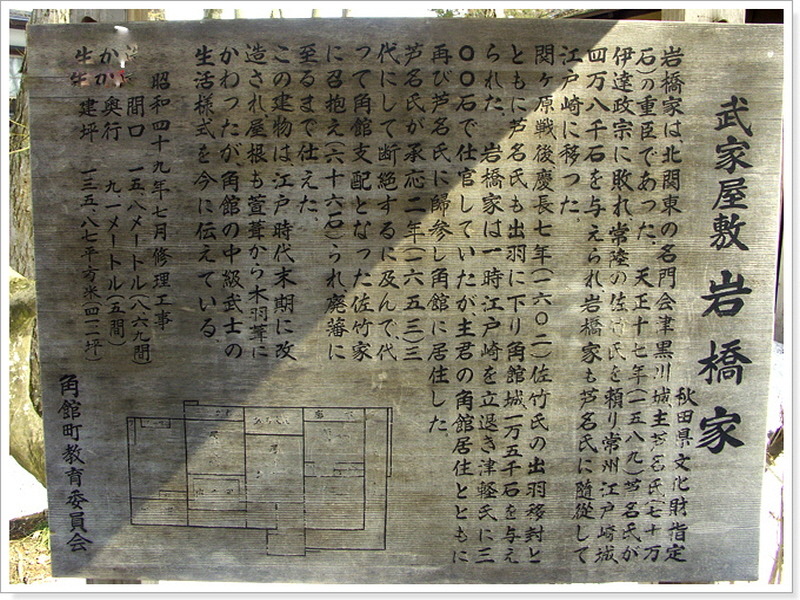 武家屋敷 岩橋家
秋田県文化財指定
岩橋家は北関東の名門会津黒川城主芦名氏(七十万
石)の重臣であった。天正十七年(一五八九)芦名氏が
伊達政宗に敗れ常陸の佐竹氏を頼り常州江戸崎城
四万八千石を与えられ岩橋家も芦名氏に随従して
江戸崎に移つた。
関ヶ原戦後慶長七年(一六〇二)佐竹氏の出羽移封と
ともに芦名氏も出羽に下り角館城一万五千石を与え
られた。岩橋家は一時江戸崎を立退き津軽氏に三
〇〇石で仕官していたが主君の角館居住とともに
再び芦名氏に歸參し角館に居住した。
芦名氏が承応二年(一六五三)三
代にして断絶するに及んで、代
つて角館支配となった佐竹家
に召抱え(六十六石)られ廃藩に
至るまで仕えた。
この建物は江戸時代末期に改
造され屋根も萱葺から木羽葺に
かわつたが角館の中級武士の
生活様式を今に伝えている。
昭和四十九年七月修理工事
間口 一五.八メートル(八.六九間)
奥行 九.一メートル(五間)
建坪 一三五.八七平方米(四一坪)
角館町教育委員会